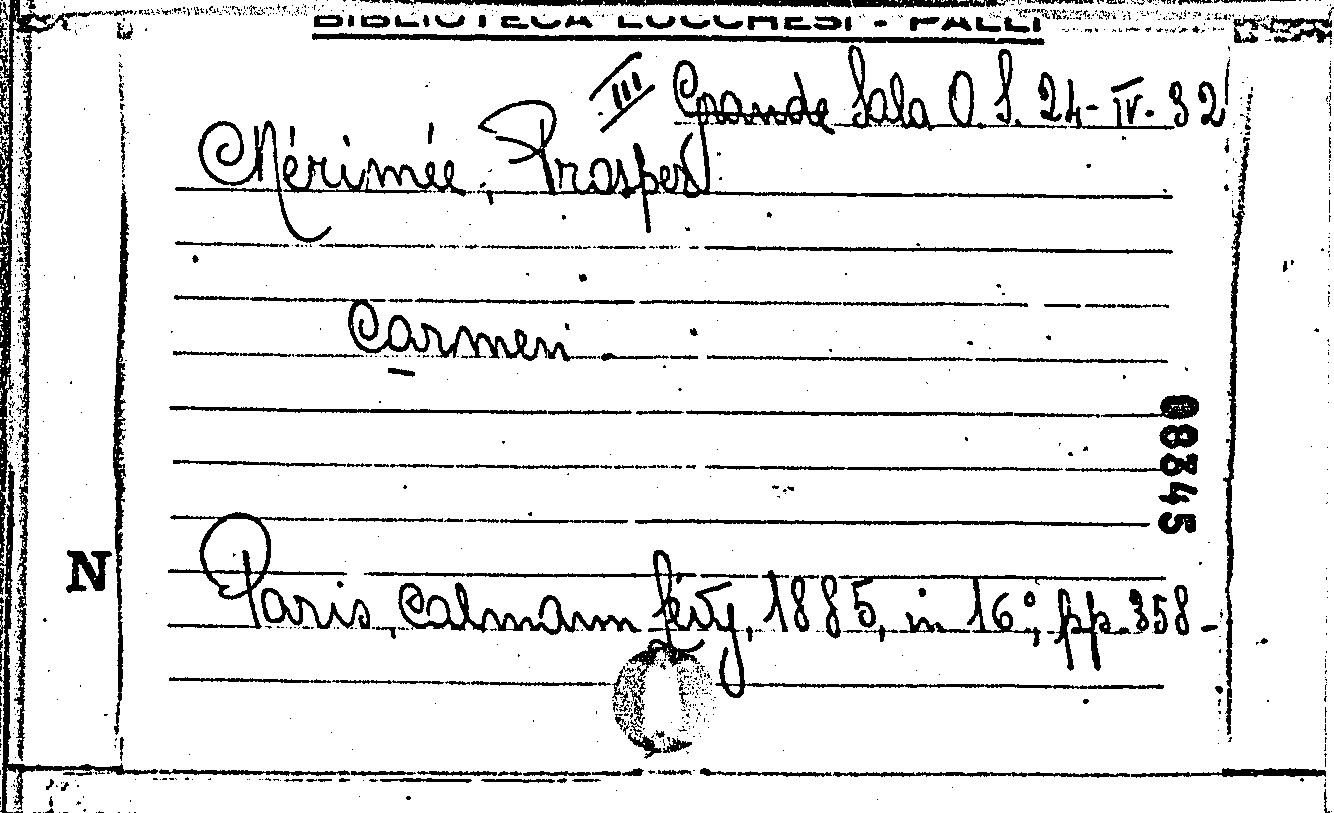 BIBLIOTECA LUCCHESI - PALLI
III Grande Sala O. S. 24-IV-32
Mérimée, Prosper
Carmen.
08845
N
Paris, Calmann Lévy, 1885, in 16º, pp. 358-